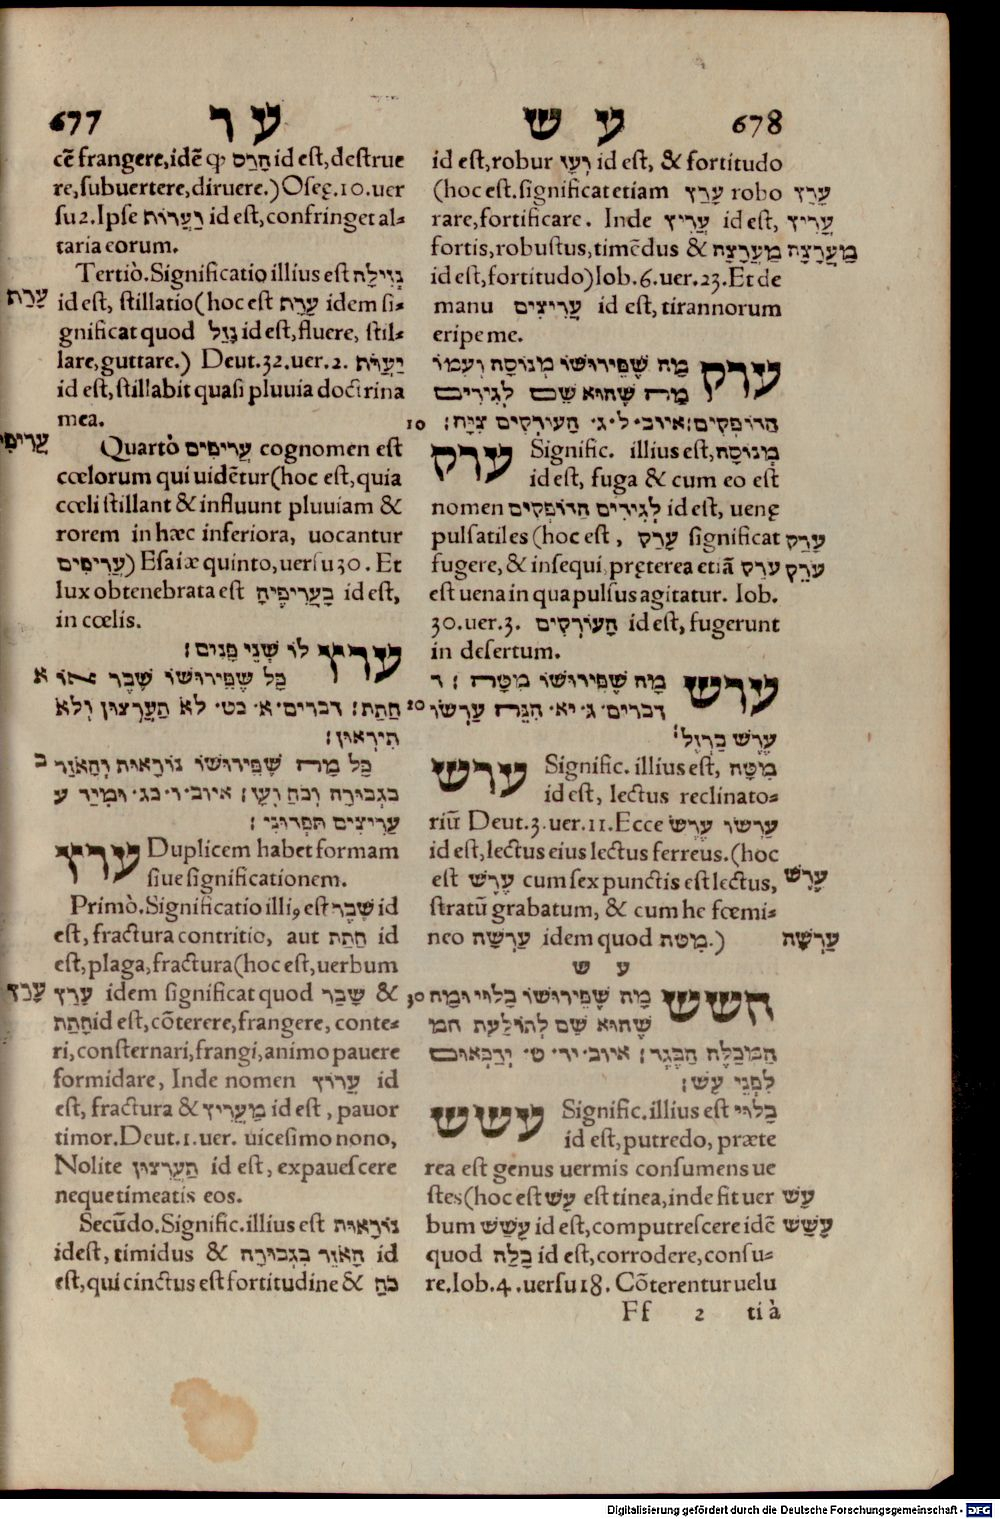 677 ער
cē frangere, idē ꝙ הָרַס id est, destrue
re, subuertere, diruere.) Oseę. 10. uer
su 2. Ipse יַעֲרוֹף id est, confringet al-
taria eorum.
Tertiò. Significatio illius est נְזִילָה
ערף id est, stillatio (hoc est עָרַף idem si-
gnificat quod נָזַל id est, fluere, stil-
lare, guttare.) Deut. 32. uer. 2. יַעֲרֹף
id est, stillabit quasi pluuia doctrina
mea.
עריפים Quartò עֲרִיפִים cognomen est
cœlorum qui uidētur (hoc est, quia
cœli stillant & influunt pluuiam &
rorem in hæc inferiora, uocantur
עֲרִיפִים) Esaiæ quinto, uersu 30. Et
lux obtenebrata est בַּעֲרִיפֶיהָ id est,
in cœlis.
ערץ לו שְׁנֵי פָנִים׃
א כָּל שֶׁפֵּירוּשׁוֹ שֶׁבֶר או
חַתַת׃ דברים א כט לֹא תַעַרְצוּן וְלֹא
תִירְאוּן׃
ב כָּל מַה שֶׁפֵּירוּשׁוֹ נוֹרָאוּת וְהָאזוּר
בִגְבוּרָה וְכֹחַ וָעוֹז׃ איוב ו כג וּמִיַד ע
עָרִיצִים תִּפְדוּנִי׃
ערץ Duplicem habet formam
siue significationem.
Primò. Significatio illiꝰ est שֶׁבֶר id
est, fractura contritio, aut חַתַת id
est, plaga, fractura (hoc est, uerbum
ערץ עָרַץ idem significat quod שָׁבַר &
חָתַת id est, cōterere, frangere, conte-
ri, consternari, frangi, animo pauere
formidare, Inde nomen עָרוֹץ id
est, fractura & מַעֲרִיץ id est, pauor
timor. Deut. 1. uer. uicesimo nono,
Nolite תַעַרְצוּן id est, expauescere
neque timeatis eos.
Secūdo. Signific. illius est נוֹרָאוּת
id est, timidus & הָאזוּר בִּגְבוּרָה id
est, qui cinctus est fortitudine & כֹּחַ
עש 678
id est, robur וָעוֹז id est, & fortitudo
(hoc est. significat etiam עָרַץ robo עָרַץ
rare, fortificare. Inde עָרִיץ id est, עָרִיץ
fortis, robustus, timēdus & מַעֲרָצָה מַעֲרָצָה
id est, fortitudo) Iob. 6. uer. 23. Et de
manu עָרִיצִים id est, tirannorum
eripe me.
ערק מַה שֶׁפֵּירוּשׁוֹ מְנוּסָה וְעִמּוֹ
מַה שֶׁהוּא שֵׁם לְגִידִים
10 הַדּוֹפְקִים׃ איוב ל ג הָעוֹרְקִים צִיָּה׃
ערק Signific. illius est, מְנוּסָה
id est, fuga & cum eo est
nomen לְגִידִים הַדּוֹפְקִים id est, uenę
pulsatiles (hoc est, עָרַק significat עָרַק
fugere, & insequi, pręterea etiā עֹרֶק עֹרֶק
est uena in qua pulsus agitatur. Iob.
30. uer. 3. הָעוֹרְקִים id est, fugerunt
in desertum.
ערש מַה שֶׁפֵּירוּשׁוֹ מִטָּה׃ ד
20 דברים ג יא הִנֵּה עַרְשׂוֹ
עֶרֶשׂ בַּרְזֶל׃
ערש Signific. illius est, מִטָּה
id est, lectus reclinato-
riū Deut. 3. uer. 11. Ecce עַרְשׂוֹ עֶרֶשׂ
id est, lectus eius lectus ferreus. (hoc
est עֶרֶשׂ cum sex punctis est lectus, עֶרֶשׂ
stratū grabatum, & cum he fœmi-
neo עַרְשָׂה idem quod מִטָּה.) עַרְשָׂה
עש
30 עשש מַה שֶׁפֵּירוּשׁוֹ בָּלוּי וּמַה
שֶׁהוּא שֵׁם לְתוֹלַעַת המ
הַמְבַלֶּה הַבֶּגֶד׃ איוב יד ט יְדַכְּאוּם
לִפְנֵי עָשׁ׃
עשש Signific. illius est בָּלוּי
id est, putredo, præte
rea est genus uermis consumens ue
stes (hoc est עָשׁ est tinea, inde fit uer עָשׁ
bum עָשַׁשׁ id est, computrescere idē עָשַׁשׁ
quod בָּלָה id est, corrodere, consu-
re. Iob. 4. uersu 18. Cōterentur uelu
Ff 2 tià
Digitalisierung gefördert durch die Deutsche Forschungsgemeinschaft - DFG